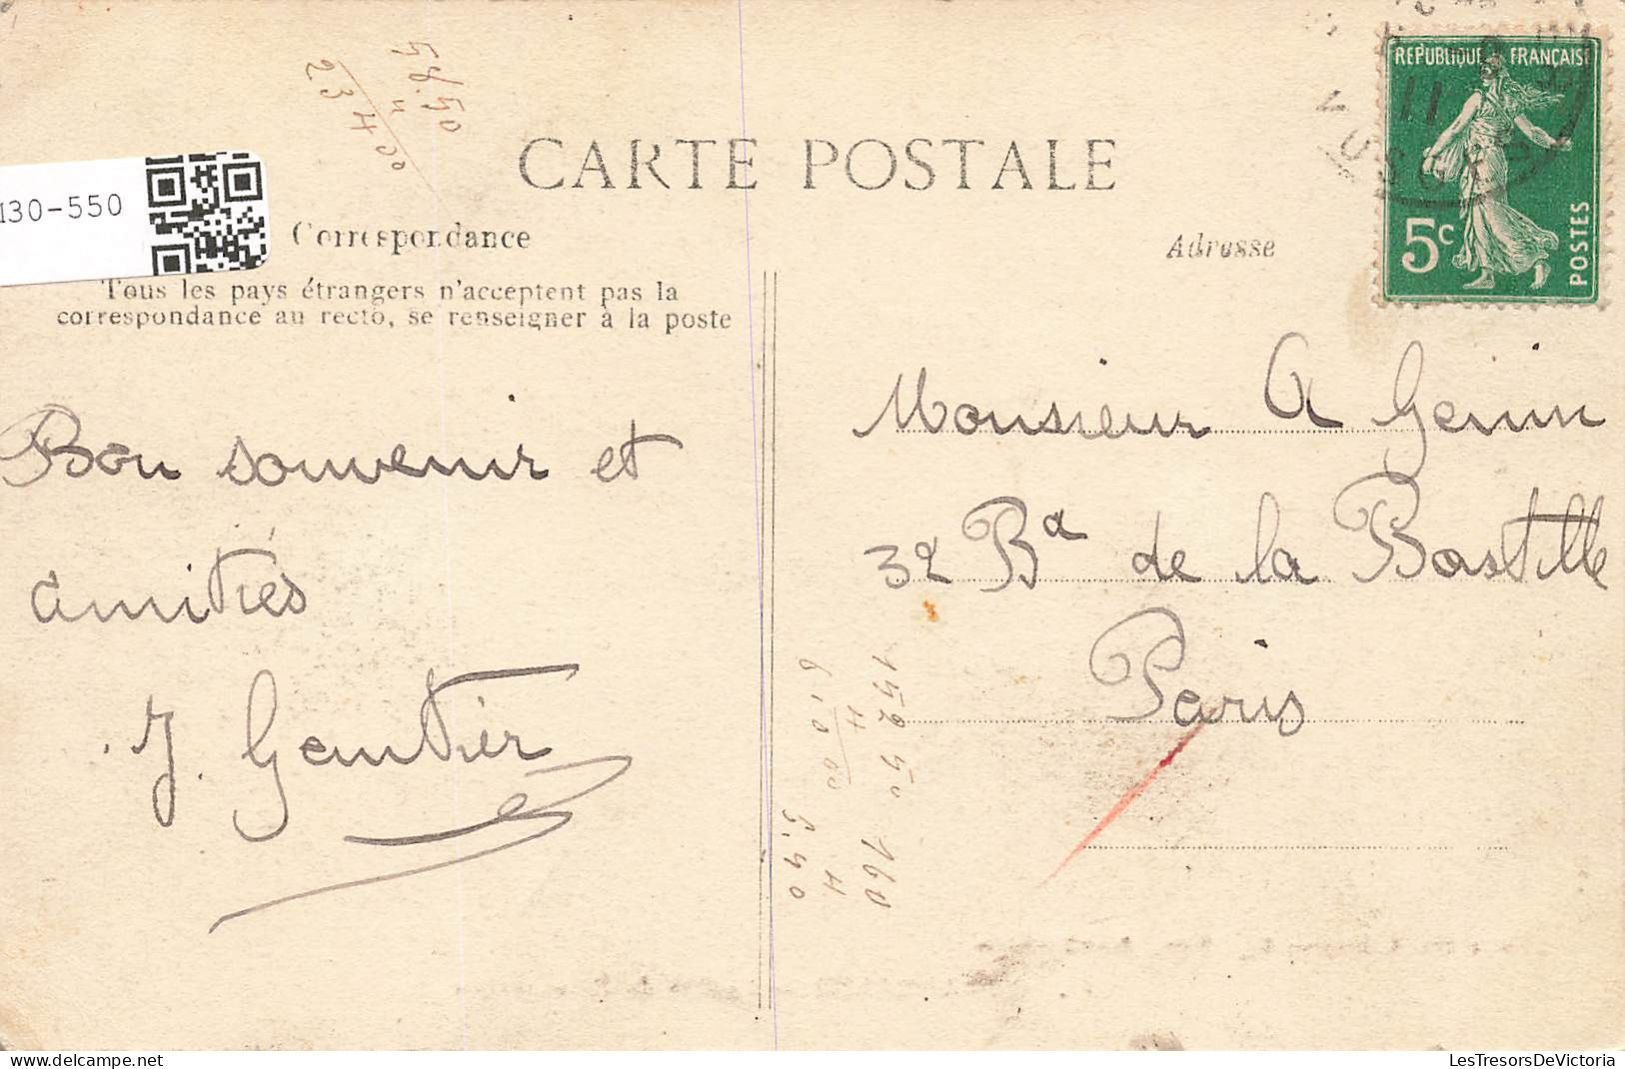 58.50
4
23400
CARTE POSTALE
REPUBLIQUE FRANÇAISE
11
5c
POSTES
130-550
Correspondance
Adresse
Tous les pays étrangers n'acceptent pas la
correspondance au recto, se renseigner à la poste
Bon souvenir et
amitiés
J. Gautier
Monsieur A Genin
32 Bd de la Bastille
Paris
152 50
4
610 00
160
4
5.40
LesTresorsDeVictoria